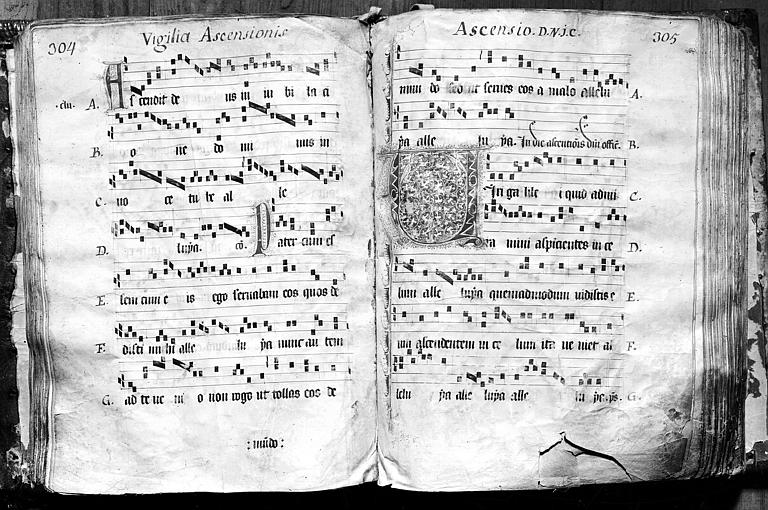 304
Vigilia Ascensionis
A. As cendit de us in iu bi la ci
B. o ne do mi nus in
C. uo ce tu be al le
D. luya. co. Pater cum es
E. sem cum e is ego seruabam eos quos de
F. disti mi hi alle lu ya nunc au tem
G. ad te ue ni o non rogo ut tollas eos de
: mūdo :
Ascensio. D.N.J.C.
305
mun do sed ut serues eos a malo allelu A.
ya alle lu ya. In die ascentiōis dni offic. B.
Uiri ga lile i quid admi C.
ra mini aspicientes in ce D.
lum alle luya quemadmodum uidistis e E.
um ascendentem in ce lum ita ue niet al F.
lelu ya alle luya alle lu ya. ps. G.